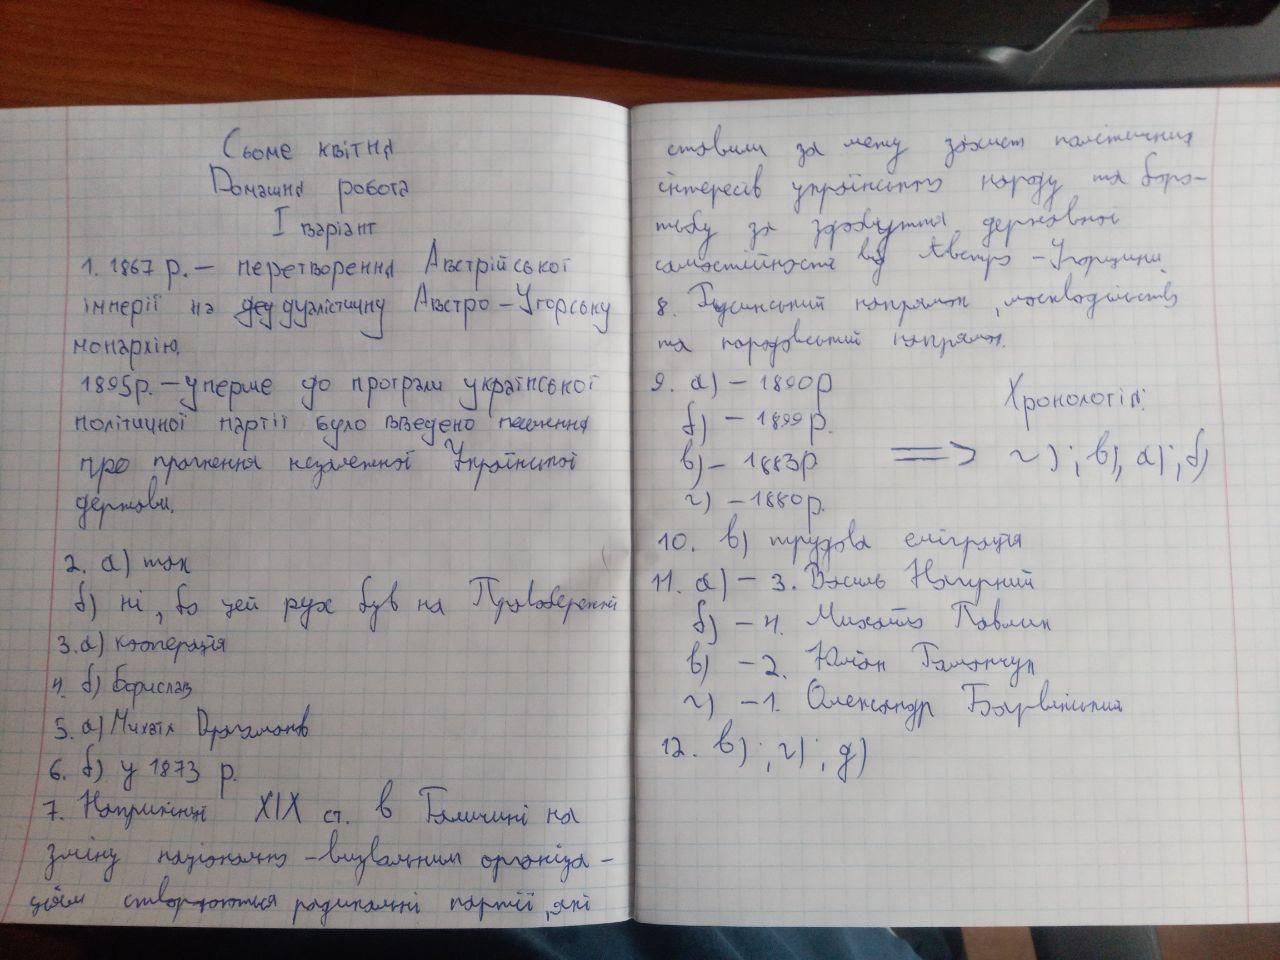 Сьоме квітня
Домашня робота
I варіант
1. 1867 р. – перетворення Австрійської
імперії на дуалістичну Австро-Угорську
монархію.
1895р. – уперше до програм української
політичної партії було введено
про прагнення незалежної Української
держави.
2. а) так
б) ні, бо цей рух був на Правобережжі
3. а) кооперація
4. б) Борислав
5. а) Михайло Драгоманов
6. б) у 1873 р.
7. Наприкінці XIX ст. в Галичині на
зміну національно-визвольним організа-
ціям створюються радикальні партії, які
ставили за мету захист політичних
інтересів українського народу та боро-
тьбу за здобуття державної
самостійності від Австро-Угорщини
8. Русинський напрямок, москвофільство
та народовський напрямок.
9. а) – 1890р
б) – 1899р.
в) – 1883р
г) – 1880р.
Хронологія:
=> г); в), а); б)
10. в) трудова еміграція
11. а) – 3. Василь Нагірний
б) – 4. Михайло Павлик
в) – 2. Юліан Романчук
г) – 1. Олександр Барвінський
12. в); г); д)